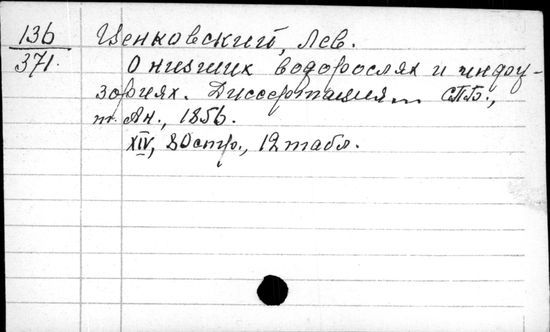 136 Ценковский, Лев.
371. О низших водорослях и инфу-
зориях. Диссертация... СПБ.,
т. Ан., 1856.
XIV, 80 стр., 12 табл.